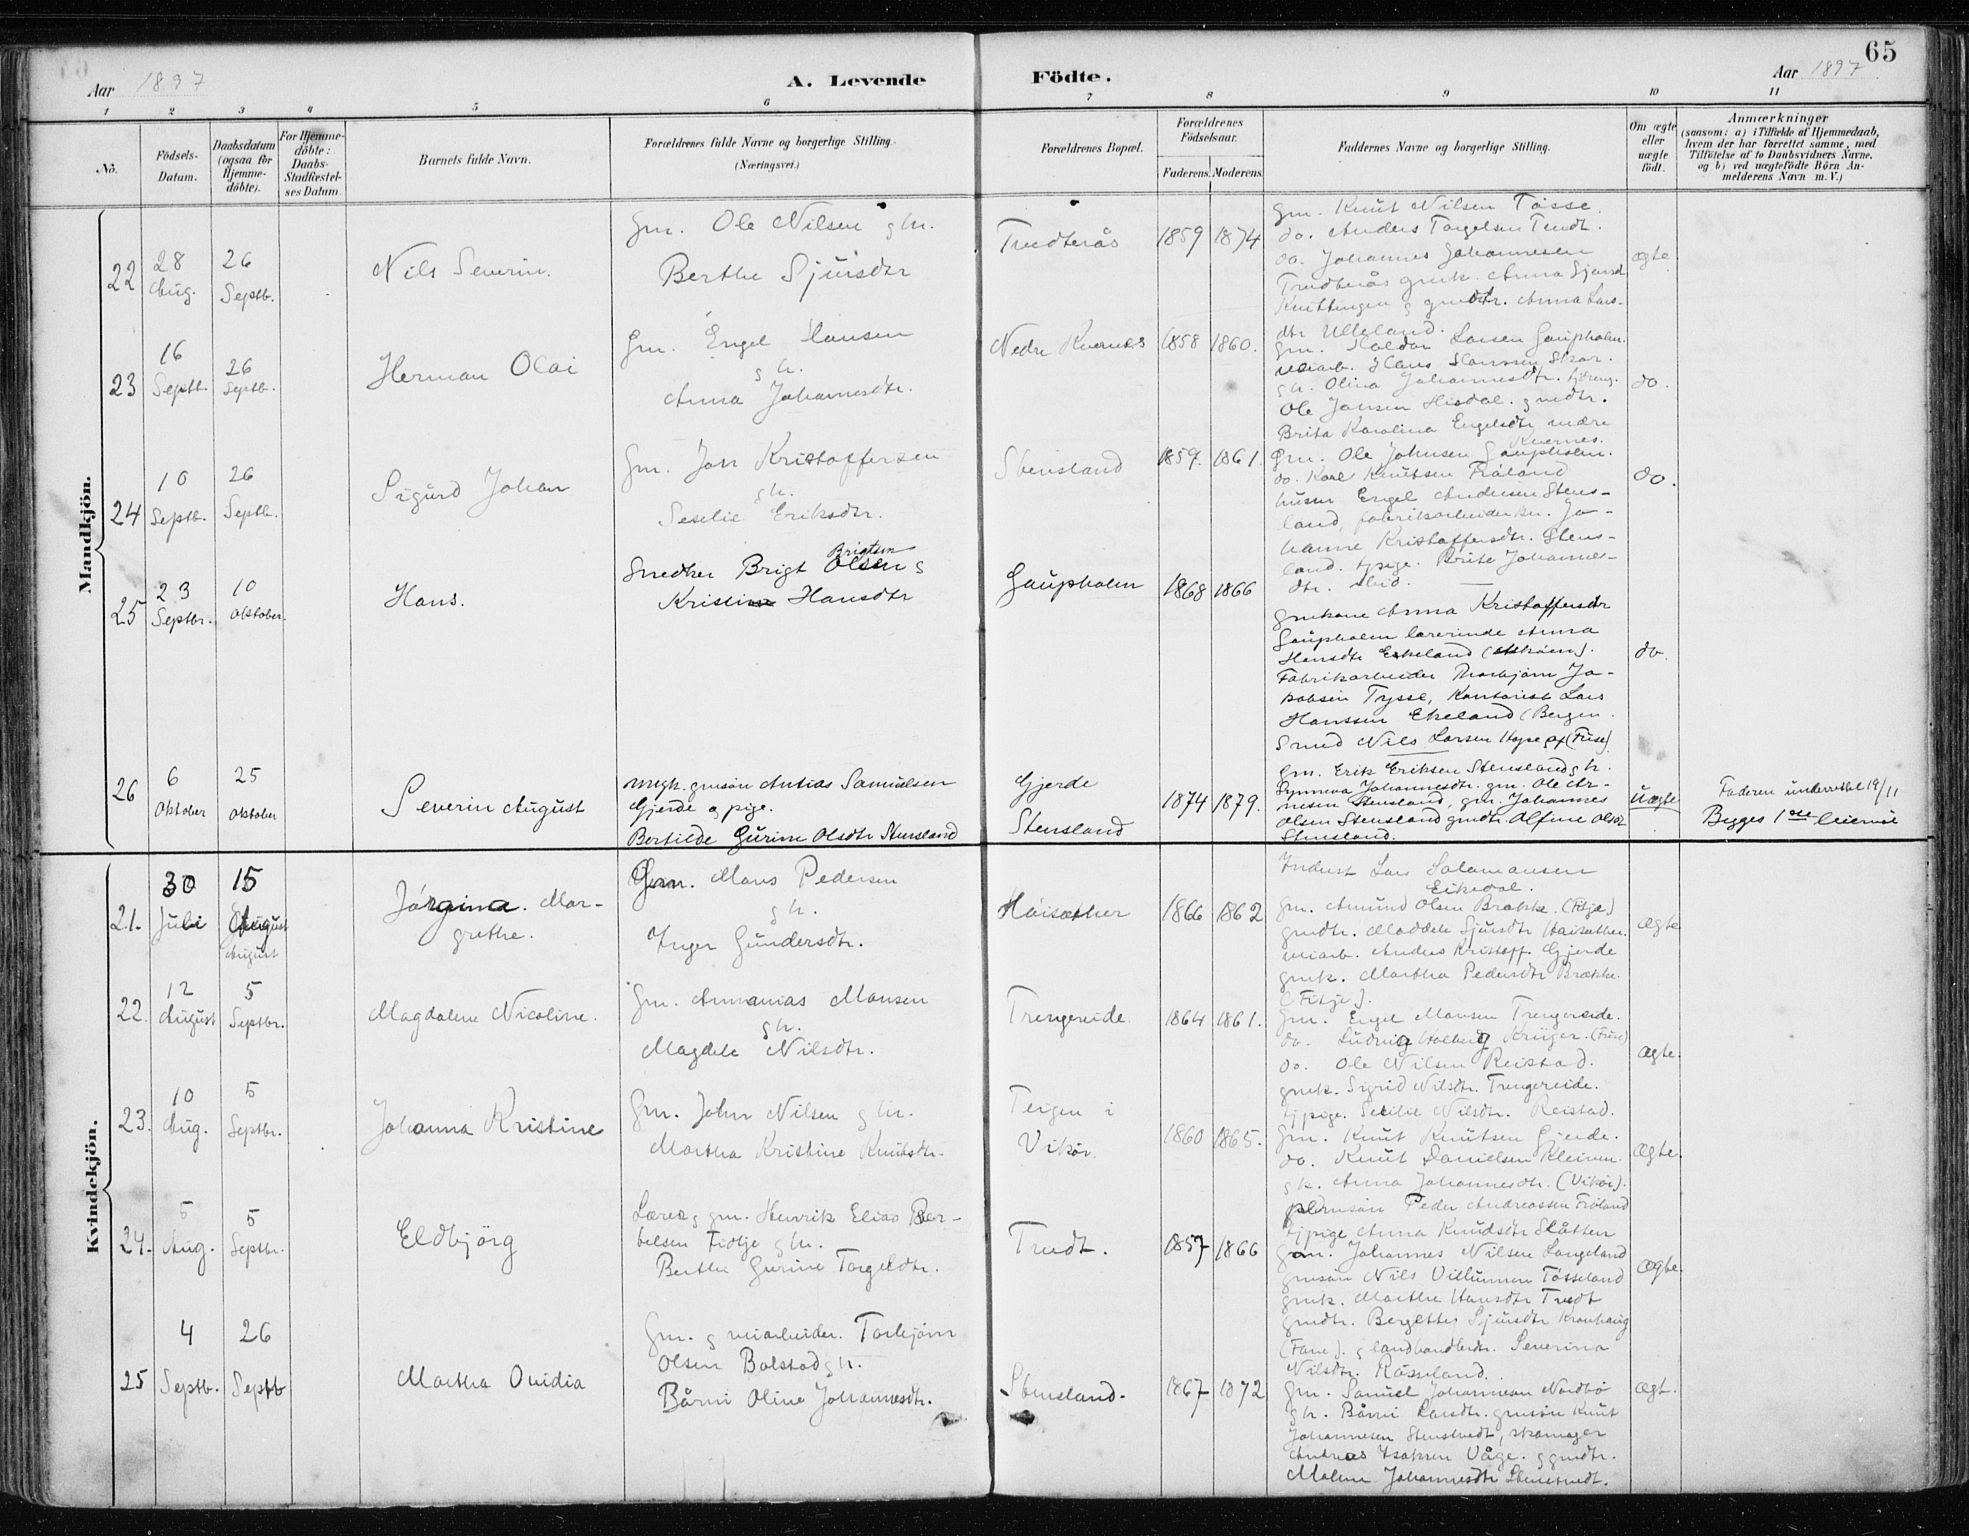 65
Aar 1897
A. Levende Födte.
Aar 1897
1 2 3 4 5 6 7 8 9 10 11
No.
Födsels-Datum.
Daabsdatum (ogsaa for Hjemme-döbte).
For Hjemme-döbte: Daabs-Stadfæstel-ses Datum.
Barnets fulde Navn.
Forældrenes fulde Navne og borgerlige Stilling.
(Næringsvei.)
Forældrenes Bopæl.
Forældrenes Födselsaar.
Faderens. Moderens.
Faddernes Navne og borgerlige Stilling.
Om ægte eller uægte födt.
Anmærkninger
(saasom: a) i Tilfælde af Hjemmedaab, hvem der har forrettet samme, med Tilföielse af to Daabsvidners Navne, og b) ved uægtefödte Börn An-melderens Navn m. V.)
Mandkjön.
22
28 Aug.
26 Septb.
Nils Severin.
Gm. Ole Nilsen g h.
Berthe Sjursdtr
Trudterås
1859 1874
Gm. Knut Nilsen Tösse.
do. Anders Torgelsen Trudt.
do. Johannes Johannesen
Trudterås gmk. Anna Sjursd
g gmdtr. Anna Lars-
dtr Ulleland.
ægte
23
16 Septb.
26 Septb.
Herman Olai
Gm. Engel Hansen
g h.
Anna Johannesdtr.
Nedre Kvernes
1858 1860.
Gm. Haldor Larsen Gaupholm.
veiarb. Hans Hanssen
g h. Olina Johannesdtr.
Ole Jansen Hisdal. gmdtr.
Brita Karolina Engelsdtr nedre
Kvernes.
do.
24
10 Septb.
26 Septb.
Sigurd Johan
Gm. Jon Kristoffersen
g h.
Seselie Eriksdtr.
Stensland
1859. 1861.
Gm. Ole Johnsen Gaupholm.
do. Karl Knutsen Fröland
husm Engel Andersen Stens-
land, fabrikarbeider Jo-
hanne Kristoffersdtr. Stens-
land. tjpige. Brita Johannes-
dtr. ibid.
do.
25
23 Septbr.
10 Oktober.
Hans.
Brigtsen
Snedker Brigt Olsen g
Kristine Hansdtr
Gaupholm
1868 1866
Gmkone Anna Kristoffersdtr
Gaupholm lærerinde Anna
Hansdtr Ekeland (Askøen).
Fabrikarbeider Thorbjörn Ja-
kobsen Trysse, Kontorist Lars
Hanssen Ekeland (Bergen.
Smed Nils Larsen Hope (Fuse)
do.
26
6 Oktober
25 Oktober
Severin August
ungk. gmsön Antias Samuelsen
Gjerde og pige.
Bertilde Gurine Olsdtr Stensland
Gjerde
Stensland
1874 1879.
Gm. Erik Eriksen Stensland g h.
Synneva Johannesdtr. gm. Ole Ar-
nesen Stensland, gm. Johannes
Olsen Stensland gmdtr. Alfine Olsdr
Stensland.
Uægte
Faderen underrettet 19/11
Begges 1ste leiermål
Kvindekjön.
21.
30 Juli
15 August
August
Jórgina. Mar-
grethe.
Gm. Mons Pedersen
g h.
Inger Gundersdtr.
Håisæther
1866 1862
Inderst Lars Salamonsen
Eikedal.
Gm. Amund Olsen Brække. (Fitje)
gmdtr. Maddele Sjursdtr Håisæther.
veiarb. Anders Kristoff. Gjerde
gmk. Martha Pedersdtr Brække.
(Fitje).
ægte
22.
12 August
5 Septbr.
Magdalene Nicoline.
Gm. Annanias Monsen
g h.
Magdele Nilsdtr.
Trengereide.
1864 1861.
Gm. Engel Monsen Trengereide.
do. Ludvig Holberg Krüger. (Fuse)
do. Ole Nilsen Reistad.
gmk. Sigrid Nilsdtr. Trengereide.
tjpige. Secilie Nilsdtr. Reistad.
ægte.
23.
10 Aug.
5 Septbr.
Johanna Kristine
Gm. John Nilsen g h.
Martha Kristine Knutsdtr.
Teigen i
Vikör.
1860 1865.
Gm. Knut Knutsen Gjerde.
do. Knut Danielsen Kleiven.
g k. Anna Johannesdtr. (Vikör).
Peder Andreassen Fröland
tjpige Anna Knudsdtr Slåtten
ægte.
24.
5 Aug.
5 Septbr.
Eldbjörg
Lærer g gm. Henrik Elias Ber-
telsen Fidtje g h.
Berthe Gurine Torgelsdtr.
Trudt.
1857 1866
Gm. Johannes Nilsen Langeland
gmsön Nils Villumsen Tösseland
gmk. Marthe Hansdtr Trudt
gmdtr. Bergette Sjursdtr
(Fane). g landhandlerdr. Severina
Nilsdtr.
ægte.
25
4 Septb.
26 Septb
Martha Ovidia
Gm. g veiarbeider. Torbjörn
Olsen Bolstad g h.
Bårni Oline Johannesdtr.
Stensland.
1867 1872
Gm. Samuel Johannesen Nordbö
g h. Bårni Larsdtr. gmsön Knut
Johannesen Stenstvedt, skomager
Andreas Isaksen Våge. g gmdtr.
Malene Johannesdtr Stenstvedt.
ægt.